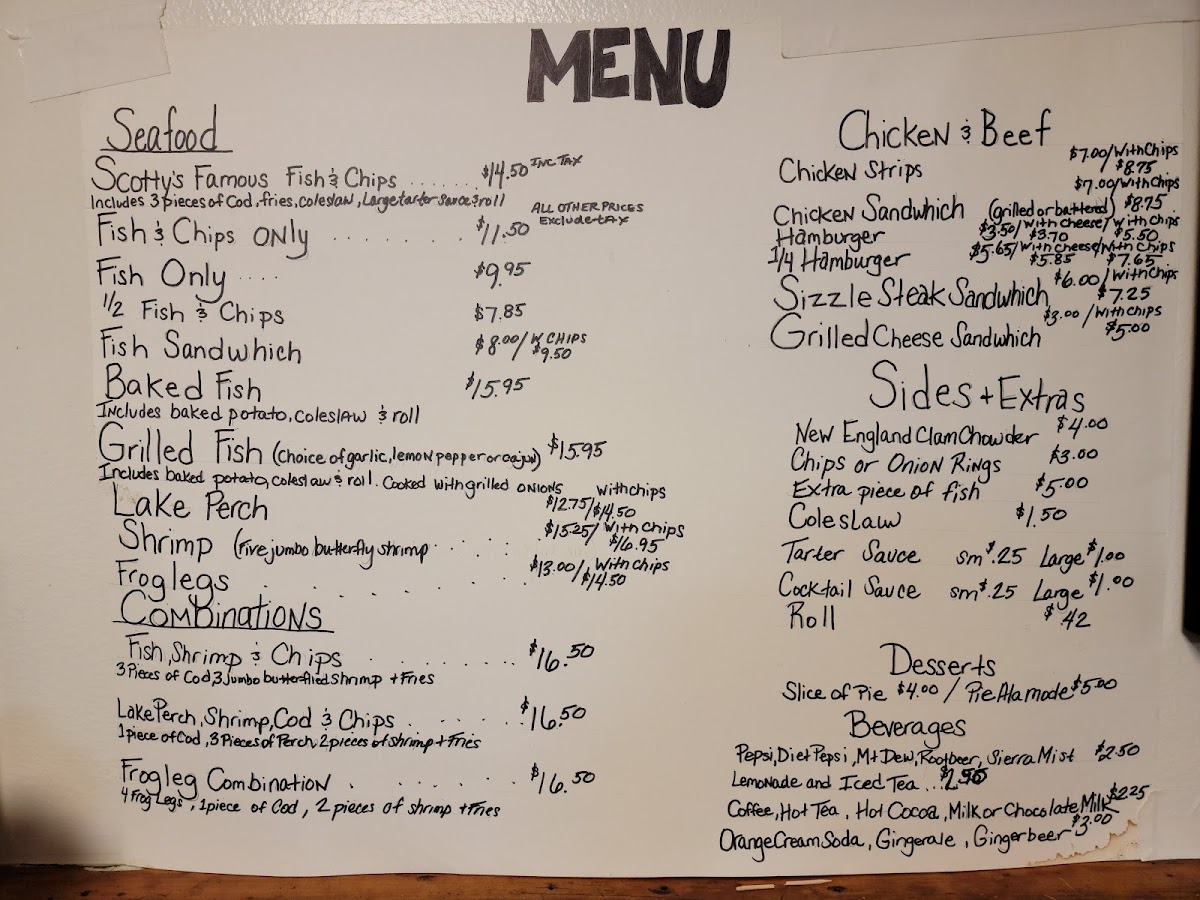 MENU
Seafood
Scotty's Famous Fish & Chips ....... $14.50 INC TAX
Includes 3 pieces of Cod, fries, coleslaw, Large tarter sauce & roll
ALL OTHER PRICES
Exclude tax
Fish & Chips ONLY ......... $11.50
Fish Only .... $9.95
1/2 Fish & Chips $7.85
Fish Sandwhich $8.00/ W CHIPS $9.50
Baked Fish $15.95
Includes baked potato, coleslaw & roll
Grilled Fish (choice of garlic, lemon pepper or cajun) $15.95
Includes baked potato, coleslaw & roll. Cooked with grilled ONIONS
Lake Perch $12.75/ With chips $14.50
Shrimp (five jumbo butterfly shrimp ...... $15.25/ With Chips $16.95
Frog legs ....... $13.00/ With chips $14.50
Combinations
Fish, Shrimp & Chips .......... $16.50
3 Pieces of Cod, 3 Jumbo butterflied Shrimp + Fries
Lake Perch, Shrimp, Cod & Chips ...... $16.50
1 piece of Cod, 3 Pieces of Perch, 2 pieces of Shrimp + Fries
Frog leg Combination ......... $16.50
4 Frog Legs, 1 piece of Cod, 2 pieces of shrimp + fries
Chicken & Beef
Chicken Strips $7.00/With Chips $8.75
Chicken Sandwhich (grilled or battered) $7.00/With Chips $8.75
Hamburger $3.50/ With cheese $3.70 / With chips $5.50
1/4 Hamburger $5.65/ With cheese $5.85 /With chips $7.65
Sizzle Steak Sandwhich $6.00/ With chips $7.25
Grilled Cheese Sandwhich $3.00 / With chips $5.00
Sides + Extras
New England Clam Chowder $4.00
Chips or Onion Rings $3.00
Extra piece of fish $5.00
Coleslaw $1.50
Tarter Sauce sm $.25 Large $1.00
Cocktail Sauce sm $.25 Large $1.00
Roll $.42
Desserts
Slice of Pie $4.00 / Pie Ala mode $5.00
Beverages
Pepsi, Diet Pepsi, Mt Dew, Rootbeer, Sierra Mist $2.50
Lemonade and Iced Tea ..
Coffee, Hot Tea, Hot Cocoa, Milk or Chocolate Milk $2.25
Orange Cream Soda, Gingerale, Gingerbeer $3.00